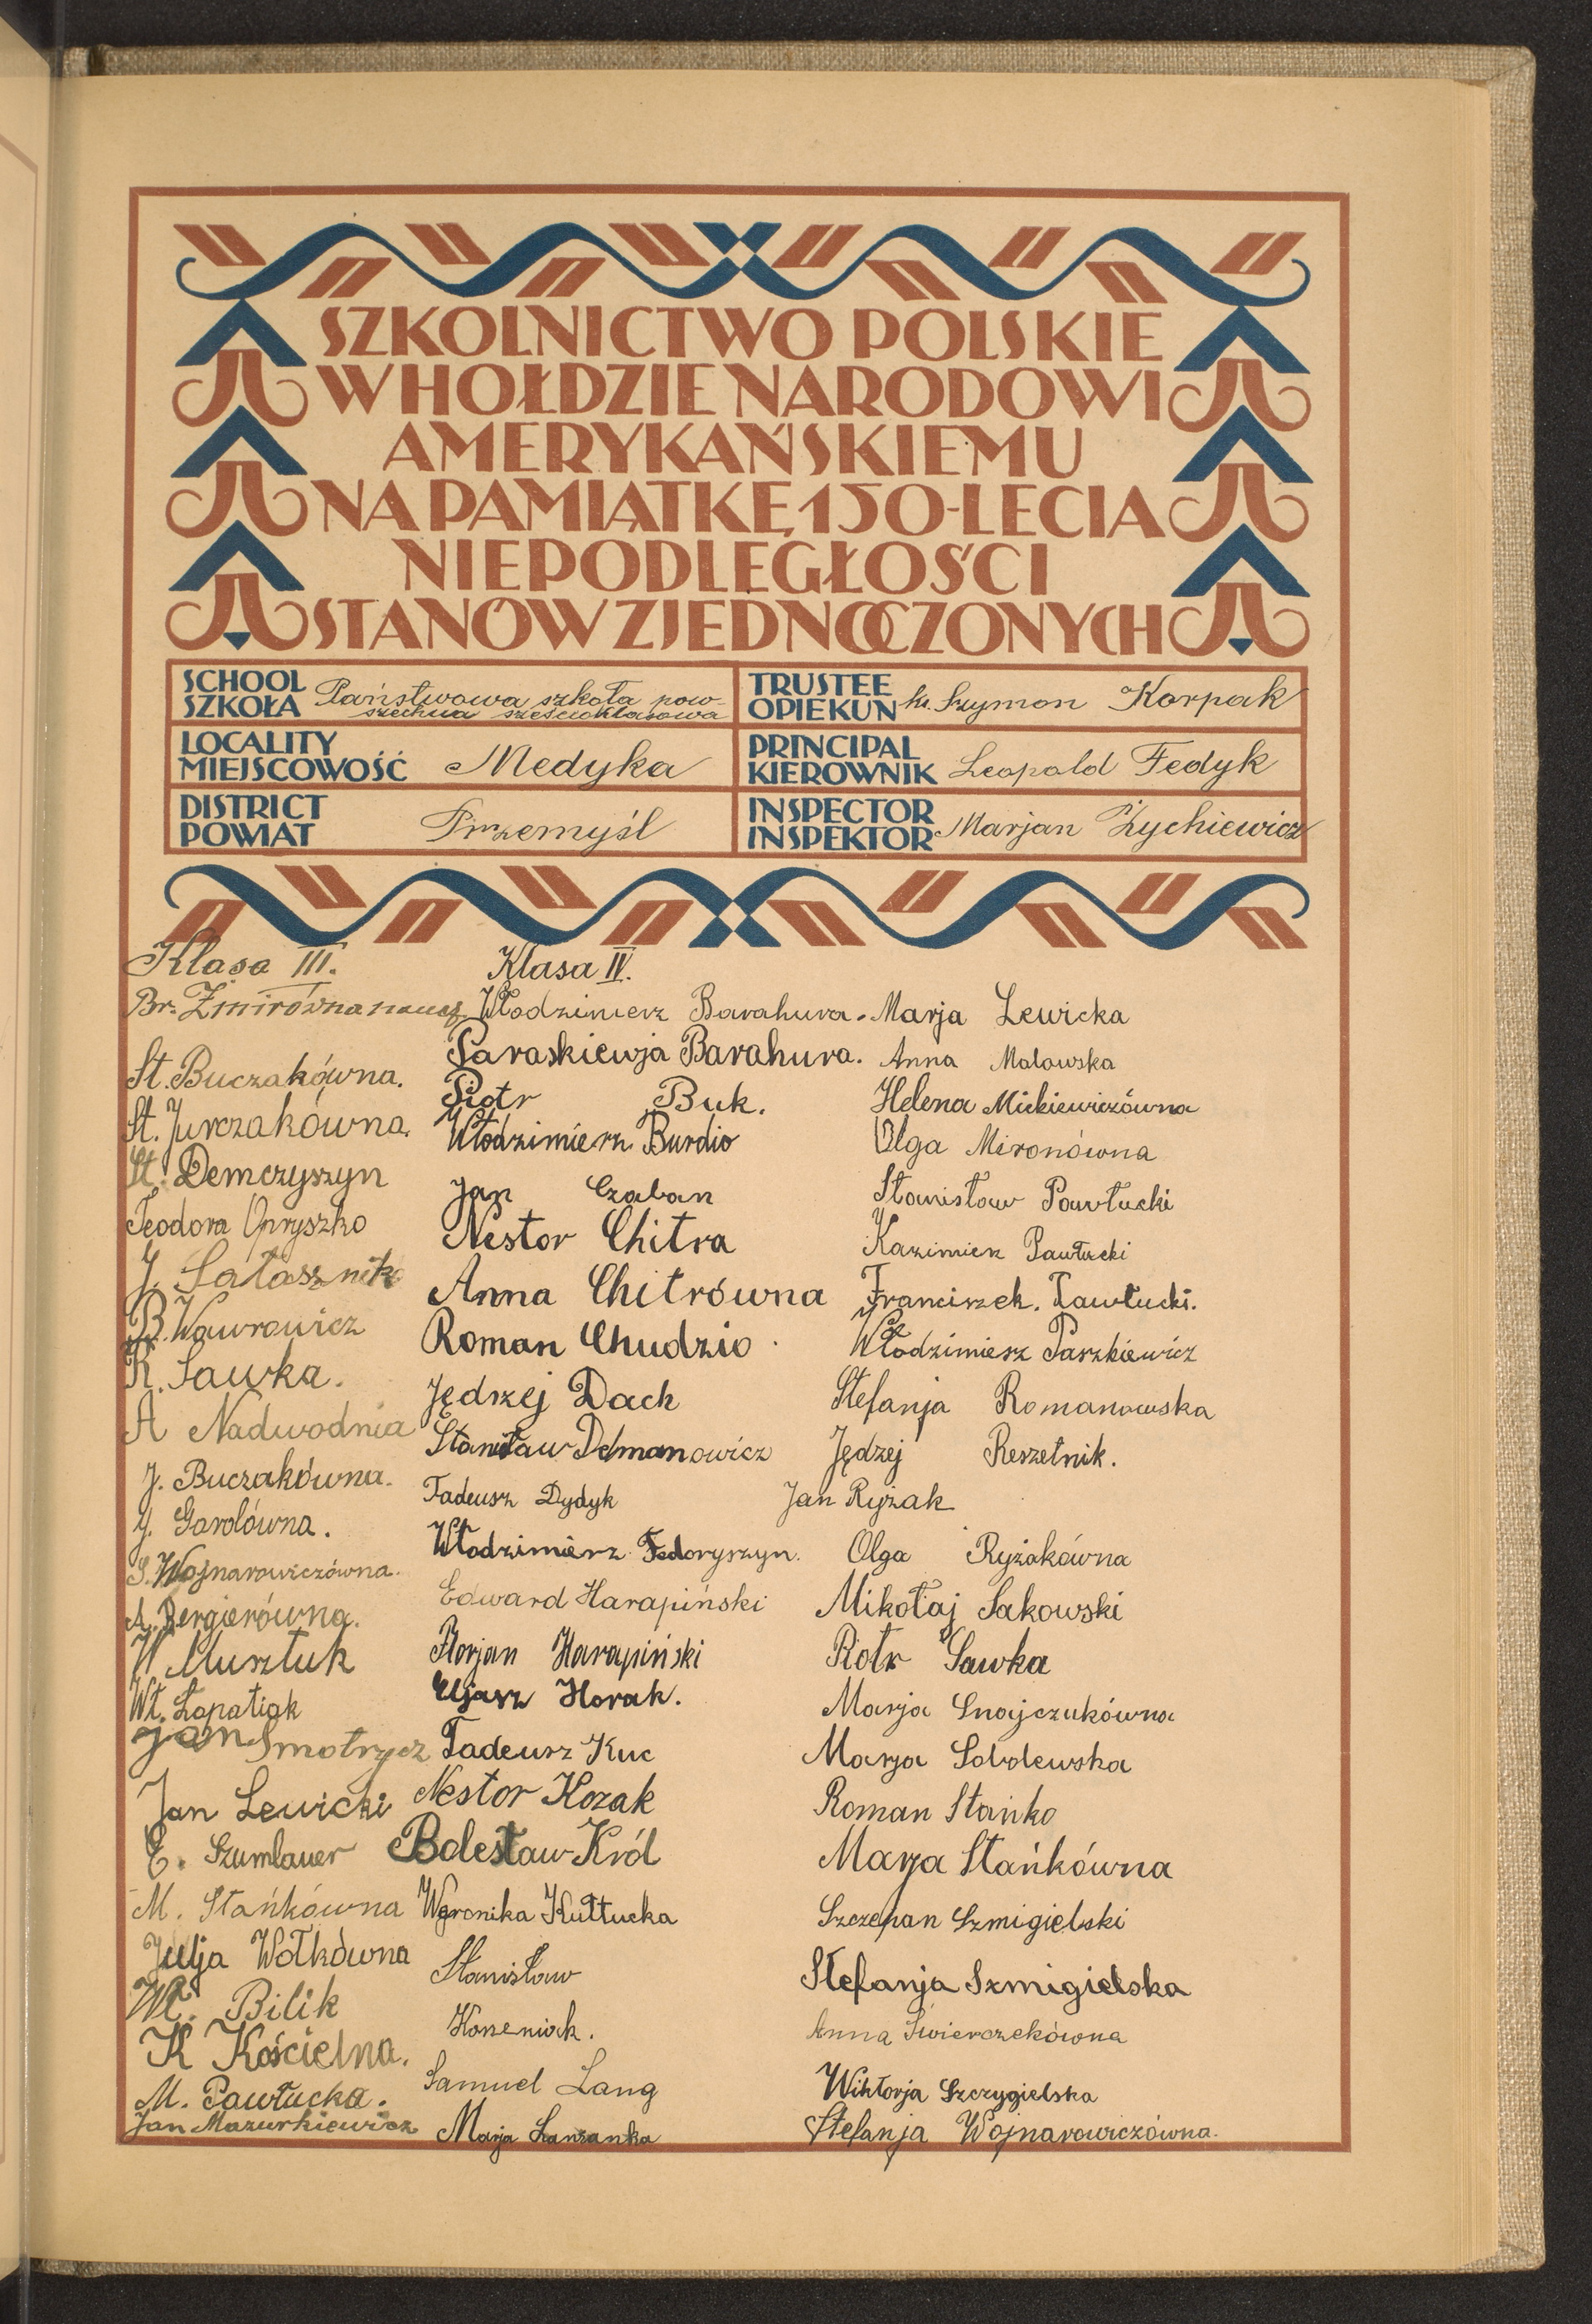 SZKOLNICTWO POLSKIE
W HOŁDZIE NARODOWI
AMERYKAŃSKIEMU
NA PAMIĄTKĘ 150-LECIA
NIEPODLEGŁOŚCI
STANÓW ZJEDNOCZONYCH
SCHOOL
SZKOŁA
Państwowa szkoła pow-
szechna sześcioklasowa
TRUSTEE
OPIEKUN
ks. Szymon Korpak
LOCALITY
MIEJSCOWOŚĆ
Medyka
PRINCIPAL
KIEROWNIK
Leopold Fedyk
DISTRICT
POWIAT
Przemyśl
INSPECTOR
INSPEKTOR
Marjan Żychiewicz
Klasa III.
Br. Żmirówna naucz
St. Buczakówna.
St. Jurczakówna.
St. Demczyszyn
Teodora Opryszko
J.
B. Wawrowicz
K. Sawka.
A Nadwodnia
J. Buczakówna.
J. Garolówna.
S. Wojnarowiczówna.
A. Bergierówna.
W Musztuk
Wł. Łopatiak
Jan Smotrycz
Jan Lewicki
E. Szumlauer
M. Stańkówna
Julja Wołkówna
Wł. Bilik
K Kościelna.
M. Pawłucka.
Jan Mazurkiewicz
Klasa IV.
Włodzimierz Barahura.
Paraskiewja Barahura.
Piotr Buk.
Włodzimierz Burdio
Jan Czaban
Nestor Chitra
Anna Chitrówna
Roman Chudzio
Jędrzej Dach
Stanisław Demanowicz
Tadeusz Dydyk
Włodzimierz Fedoryszyn.
Edward Harapiński
Florjan Harapiński
Eljasz Horak.
Tadeusz Kuc
Nestor Kozak
Bolesław Król
Weronika Kułtucka
Stanisław
Korzeniak.
Samuel Lang
Marja
Marja Lewicka
Anna Malawska
Helena Mickiewiczówna
Olga Mironówna
Stanisław Pawłucki
Kazimierz Pawłucki
Franciszek. Pawłucki.
Włodzimierz Paszkiewicz
Stefanja Romanowska
Jędzej Reszetnik.
Jan Ryżak
Olga Ryżakówna
Mikołaj Sakowski
Piotr Sawka
Marja Snajczukówna
Marja Sobolewska
Roman Stańko
Marja Stańkówna
Szczepan Szmigielski
Stefanja Szmigielska
Anna Świerczekówna
Wiktorja Szczygielska
Stefanja Wojnarowiczówna.